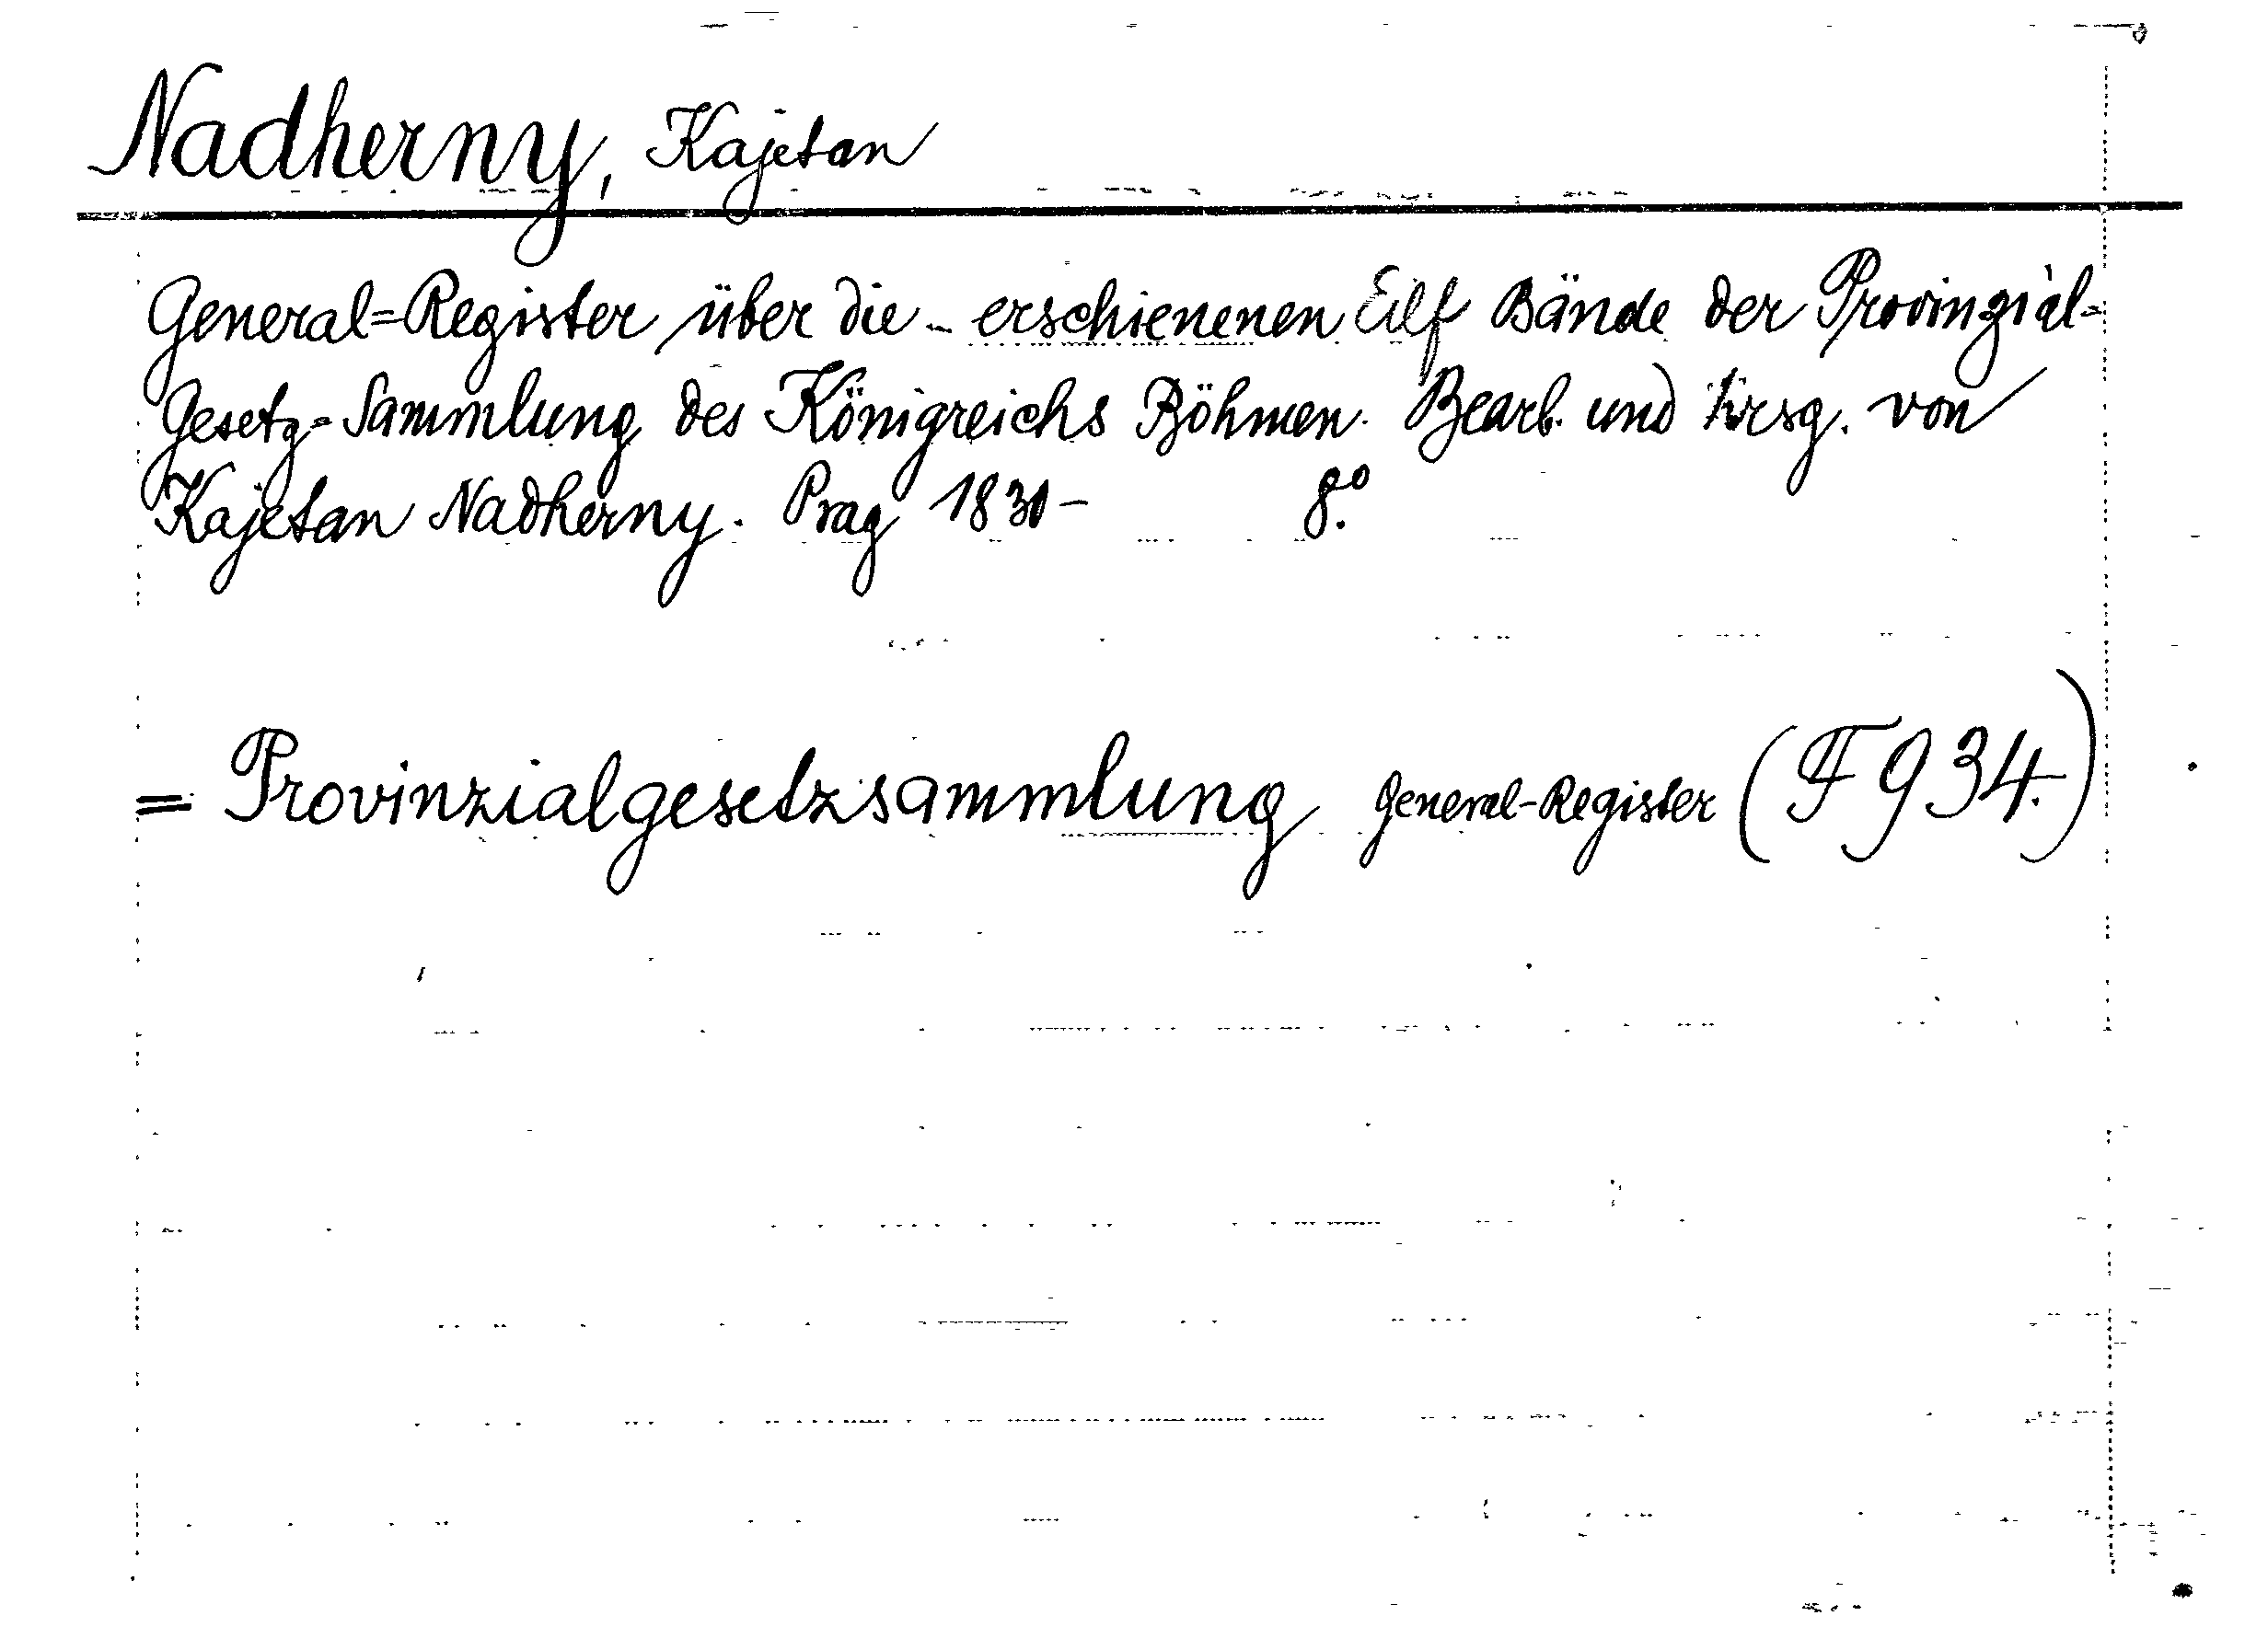 Nadherny, Kajetan
General=Register über die - erschienenen Eilf Bände der Provinzial-
Gesetz-Sammlung des Königreichs Böhmen. Bearb. und hrsg. von
Kajetan Nadherny. Prag 1831- 8.°
= Provinzialgesetzsammlung General-Register (F 934.)